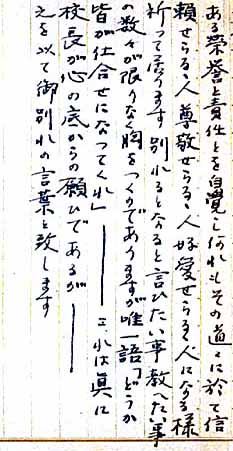 ある榮誉と責任とを自覺し何れもその道々に於て信
頼せらるゝ人尊敬せらるゝ人好愛せらるゝ人になる様
祈って居ります別れるとなると言ひたい事教へたい事
の数々が限りなく胸をつくのでありますが唯一語「どうか
皆が仕合せになってくれ」―――これは眞に
校長が心の底からの願ひであるが―――
之を以て御別れの言葉と致します